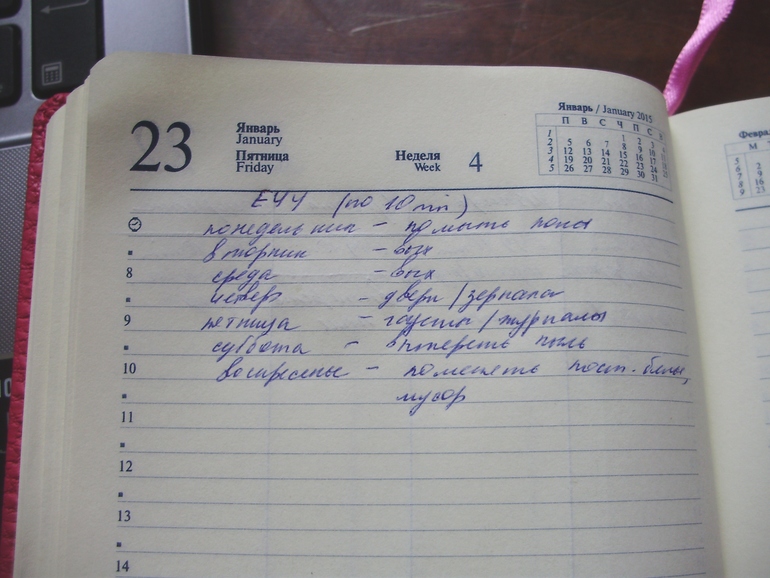 23
Январь
January
Пятница
Friday
Неделя
Week
4
Январь / January 2015
П В С Ч П С
1 1 2 3 4
2 5 6 7 8 9 10 11
3 12 13 14 15 16 17 18
4 19 20 21 22 23 24 25
5 26 27 28 29 30 31
ЕЧЧ (по 10 min)
понедельник – помыть полы
вторник – вых
8 среда – вых
четверг – двери / зеркала
9 пятница – газеты / журналы
суббота – вытереть пыль
10 воскресенье – поменять пост. белье,
мусор
11
12
13
14
Февра
М
5
6 2
7 9
8 16
9 23